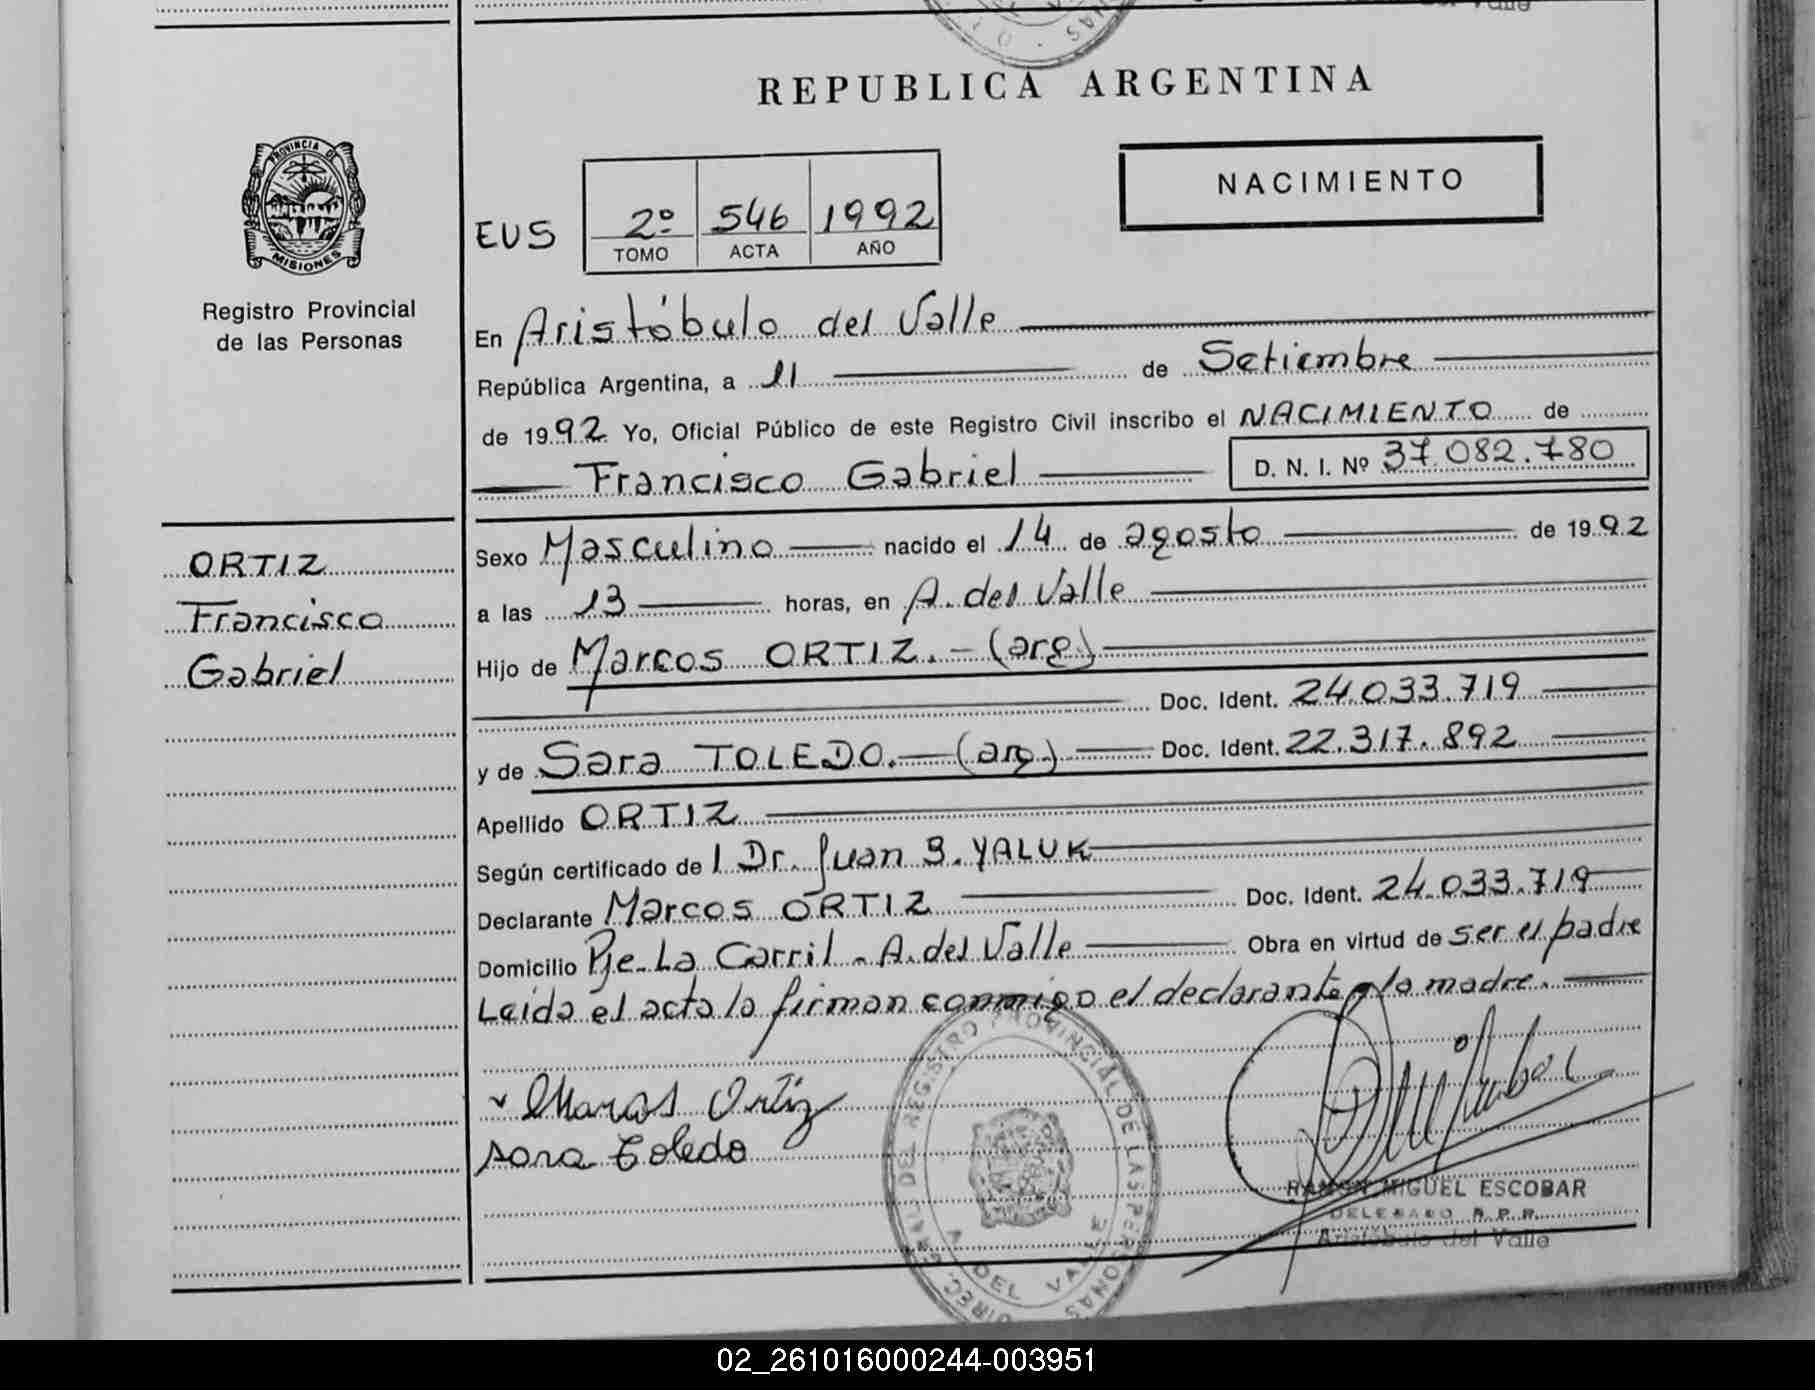 REPUBLICA ARGENTINA
PROVINCIA DE
MISIONES
Registro Provincial
de las Personas
NACIMIENTO
EUS
2º 546 1992
TOMO ACTA AÑO
En Aristóbulo del Valle
República Argentina, a 11 de Setiembre
de 1992 Yo, Oficial Público de este Registro Civil inscribo el NACIMIENTO de
Francisco Gabriel D. N. I. Nº 37.082.780
ORTIZ
Francisco
Gabriel
Sexo Masculino nacido el 14 de agosto de 1992
a las 13 horas, en A. del Valle
Hijo de Marcos ORTIZ.- (arg.)
Doc. Ident. 24.033.719
y de Sara TOLEDO.- (arg.) Doc. Ident. 22.317.892
Apellido ORTIZ
Según certificado de l Dr. Juan S. YALUK
Declarante Marcos ORTIZ Doc. Ident. 24.033.719
Domicilio Pje. La Carril - A. del Valle Obra en virtud de ser el padre
Leida el acta la firman conmigo el declarante y la madre.
Marcos Ortiz
Sara Toledo
DIREC. GRAL. DEL REGISTRO PROVINCIAL DE LAS PERSONAS
A. DEL VALLE
RAMON MIGUEL ESCOBAR
DELEGADO R.P.P.
Aristóbulo del Valle
02_261016000244-003951